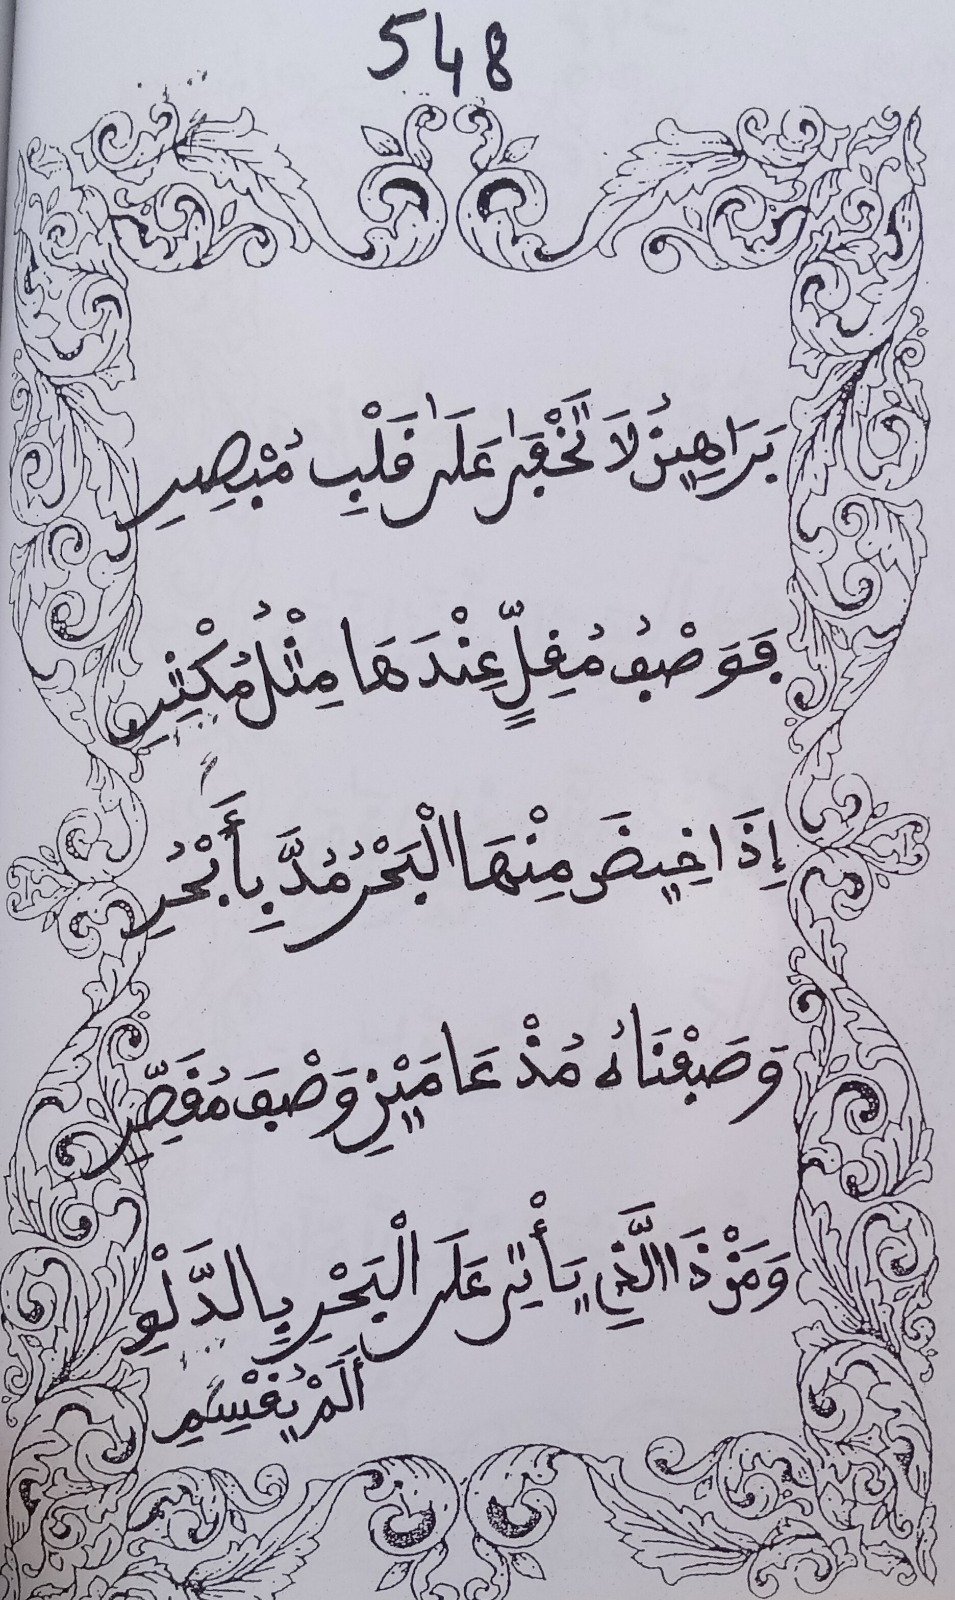 548
بَرَاهِينُ لَا تَخْفَى عَلَى قَلْبِ مُبْصِرِ
فَوَصْفُ مُقِلٍّ عِنْدَهَا مِثْلُ مُكْثِرِ
إِذَا خِيضَ مِنْهَا الْبَحْرُ مُدَّ بِأَبْحُرِ
وَصَفْنَاهُ مُذْ عَامَيْنِ وَصْفَ مُقَصِّرِ
وَمَنْ ذَا الَّذِي يَأْتِي عَلَى الْبَحْرِ بِالدَّلْوِ
أَلَمْ يُقْسِمِ